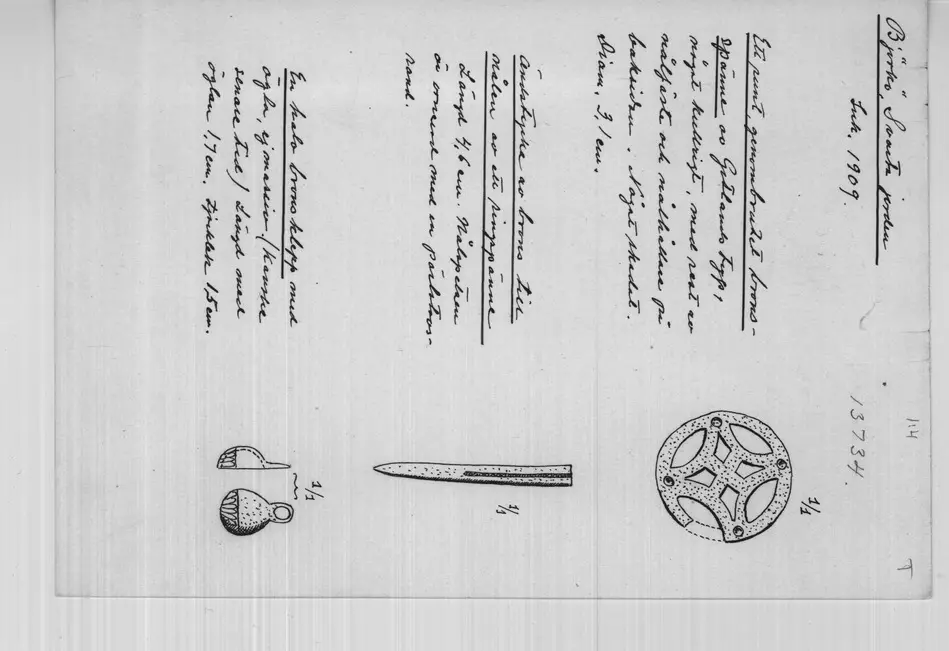 Björkö, Svarta jorden
Ink. 1909.
13734.
1:4
T
Ett runt, genombrutet brons-
spänne av Gotlands typ,
något kupigt, med rest av
nålfäste och nålhållare på
baksidan. Något skadat.
Diam. 3,1 cm.
1/1
Ändstycke av brons till
nålen av ett ringspänne
Längd 4,6 cm. Nålspetsen
är ornerad med en
rand.
1/1
En halv bronsklapp med
ögla, ej massiv (kanske
senare tid) Längd med
öglan 1,7 cm. 1,5 cm.
1/1